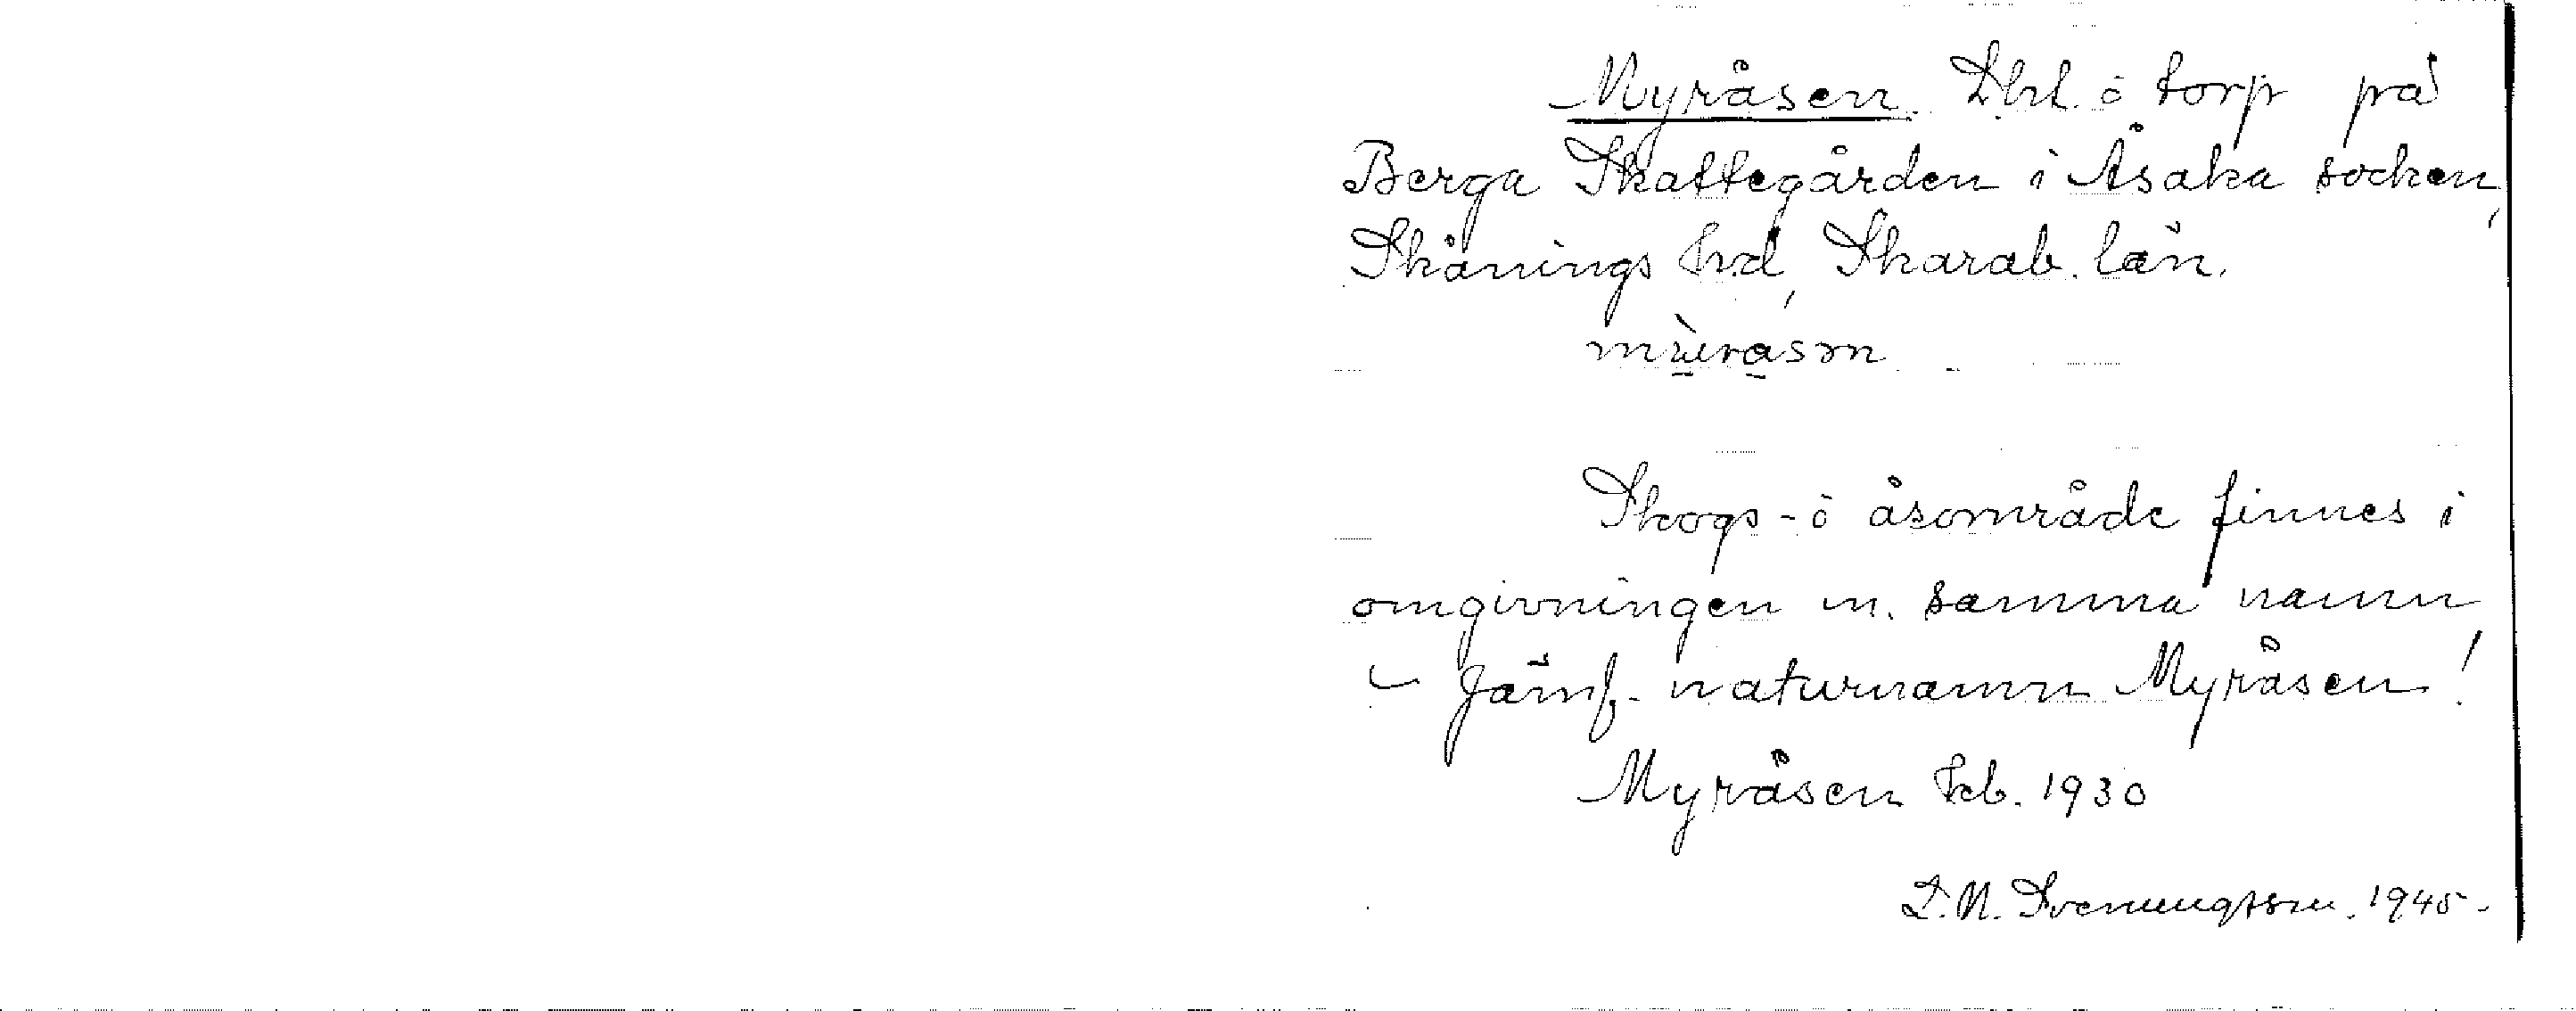 Myråsen. Lht. o torp på
Berga Skattegården i Åsaka socken,
Skånings hd, Skarab. län.
mỳråsən
Skogs- o åsområde finnes i
omgivningen m. samma namn
– Jämf. naturnamn Myråsen!
Myråsen kb. 1930
D. N. Svenungsson. 1945.